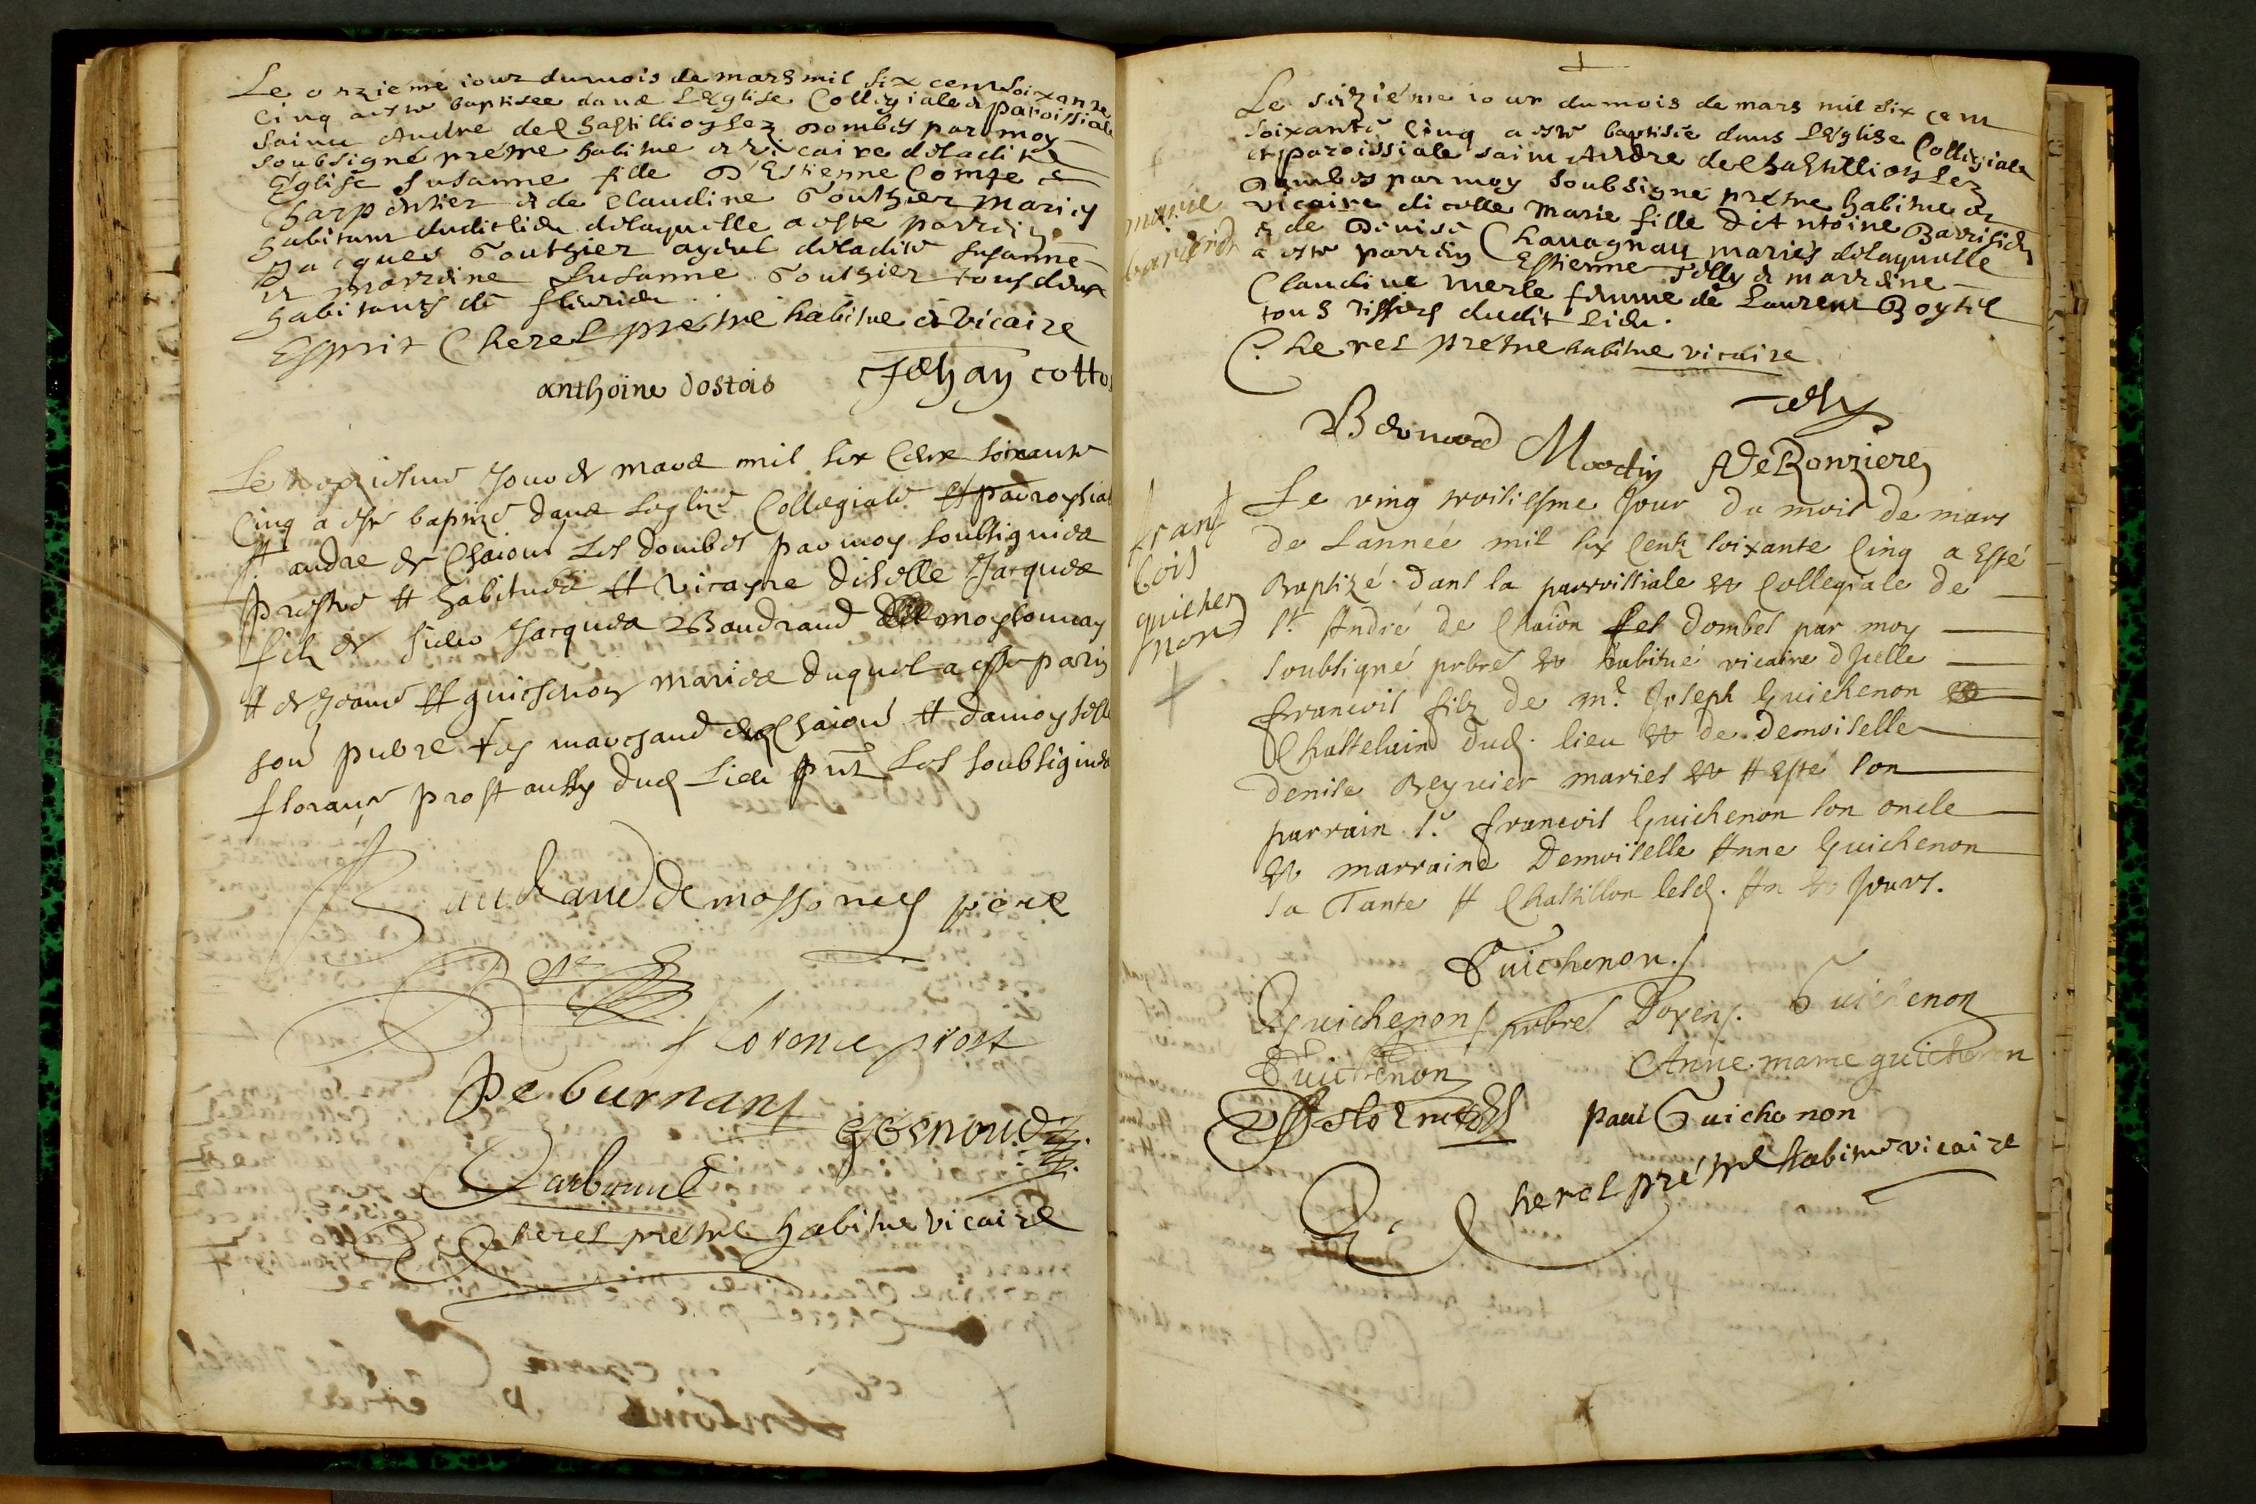 Le onzieme iour du mois de mars mil six cent soixante
cinq a este baptisee dans L'Eglise Collegiale & paroissiale
sainct Andre de Chastillion Lez Dombes par moy
soubsigné prétre habitue & vicaire de ladite
Eglise Susanne fille D'Estienne Comte
Charpentier & de Claudine Gouthier mariés
habitans dudit lieu de laquelle a este parrin
Jacques Gouthier ayeul de ladite Susanne
& marrine Susanne Gouthier tous deux
habitans de fleurieu
Esprit Cherel prétre habitue & vicaire
anthoine dostois Jehan cotto
Le Jour de mars mil six Cent soixante
Cinq a este baptizé dans Leglize Collegiale et parroyssial
St andre de Chaion Les dombes par moy soubsignés
prestre et habitués et vicayre dicelle Jacques
filz de sieur Jacques Baudrand de moyssonay
et de Jeanne guichenon mariés duquel a esté parin
son pierre marchand de Chaion et damoyselle
florance prost aussy dud lieu Les soubsignés
Baudrand De massoney pere
florence prost
De burnant
genoud
Carbonnel
Cherel prétre habitue vicaire
Le seizième iour du mois de mars mil six cent
soixante cinq a este baptisée dans L'Eglise Collegiale
et paroissiale saint Andre de Chastillion Lez
Dombes par moy soubsigné prétre habitue &
vicaire dicelle Marie fille d'Antoine Bariliedz
& de Denise Chavagnan mariés de laquelle
a este parrin Estienne Jolly & marrine
Claudine Merle femme de Laurent Boytel
tous dudit Lieu.
Cherel prétre habitue vicaire
marie
Bernard Martin ADeRonziere
Le ving troisiesme Jour du mois de mars
de Lannée mil six Cents soixante Cinq a Esté
Baptizé dans la parroissiale et Collegiale de
St André de Chaion Les Dombes par moy
soubsigné pbre et habitué vicaire d'Jcelle
francois filz de me Joseph Guichenon
Chastelain dud. lieu et de Demoiselle
denise Reyvier mariés et a Esté son
parrain Sr francois Guichenon son oncle
et marraine Demoiselle Anne Guichenon
sa Tante A Chastillon lesd. An et Jours.
frans
cois
guiche
non
Guichenon
Guichenon pbre Doyen Guichenon
Guichenon Anne marie guichenon
paul Guichenon
Cherel prétre habitue vicaire